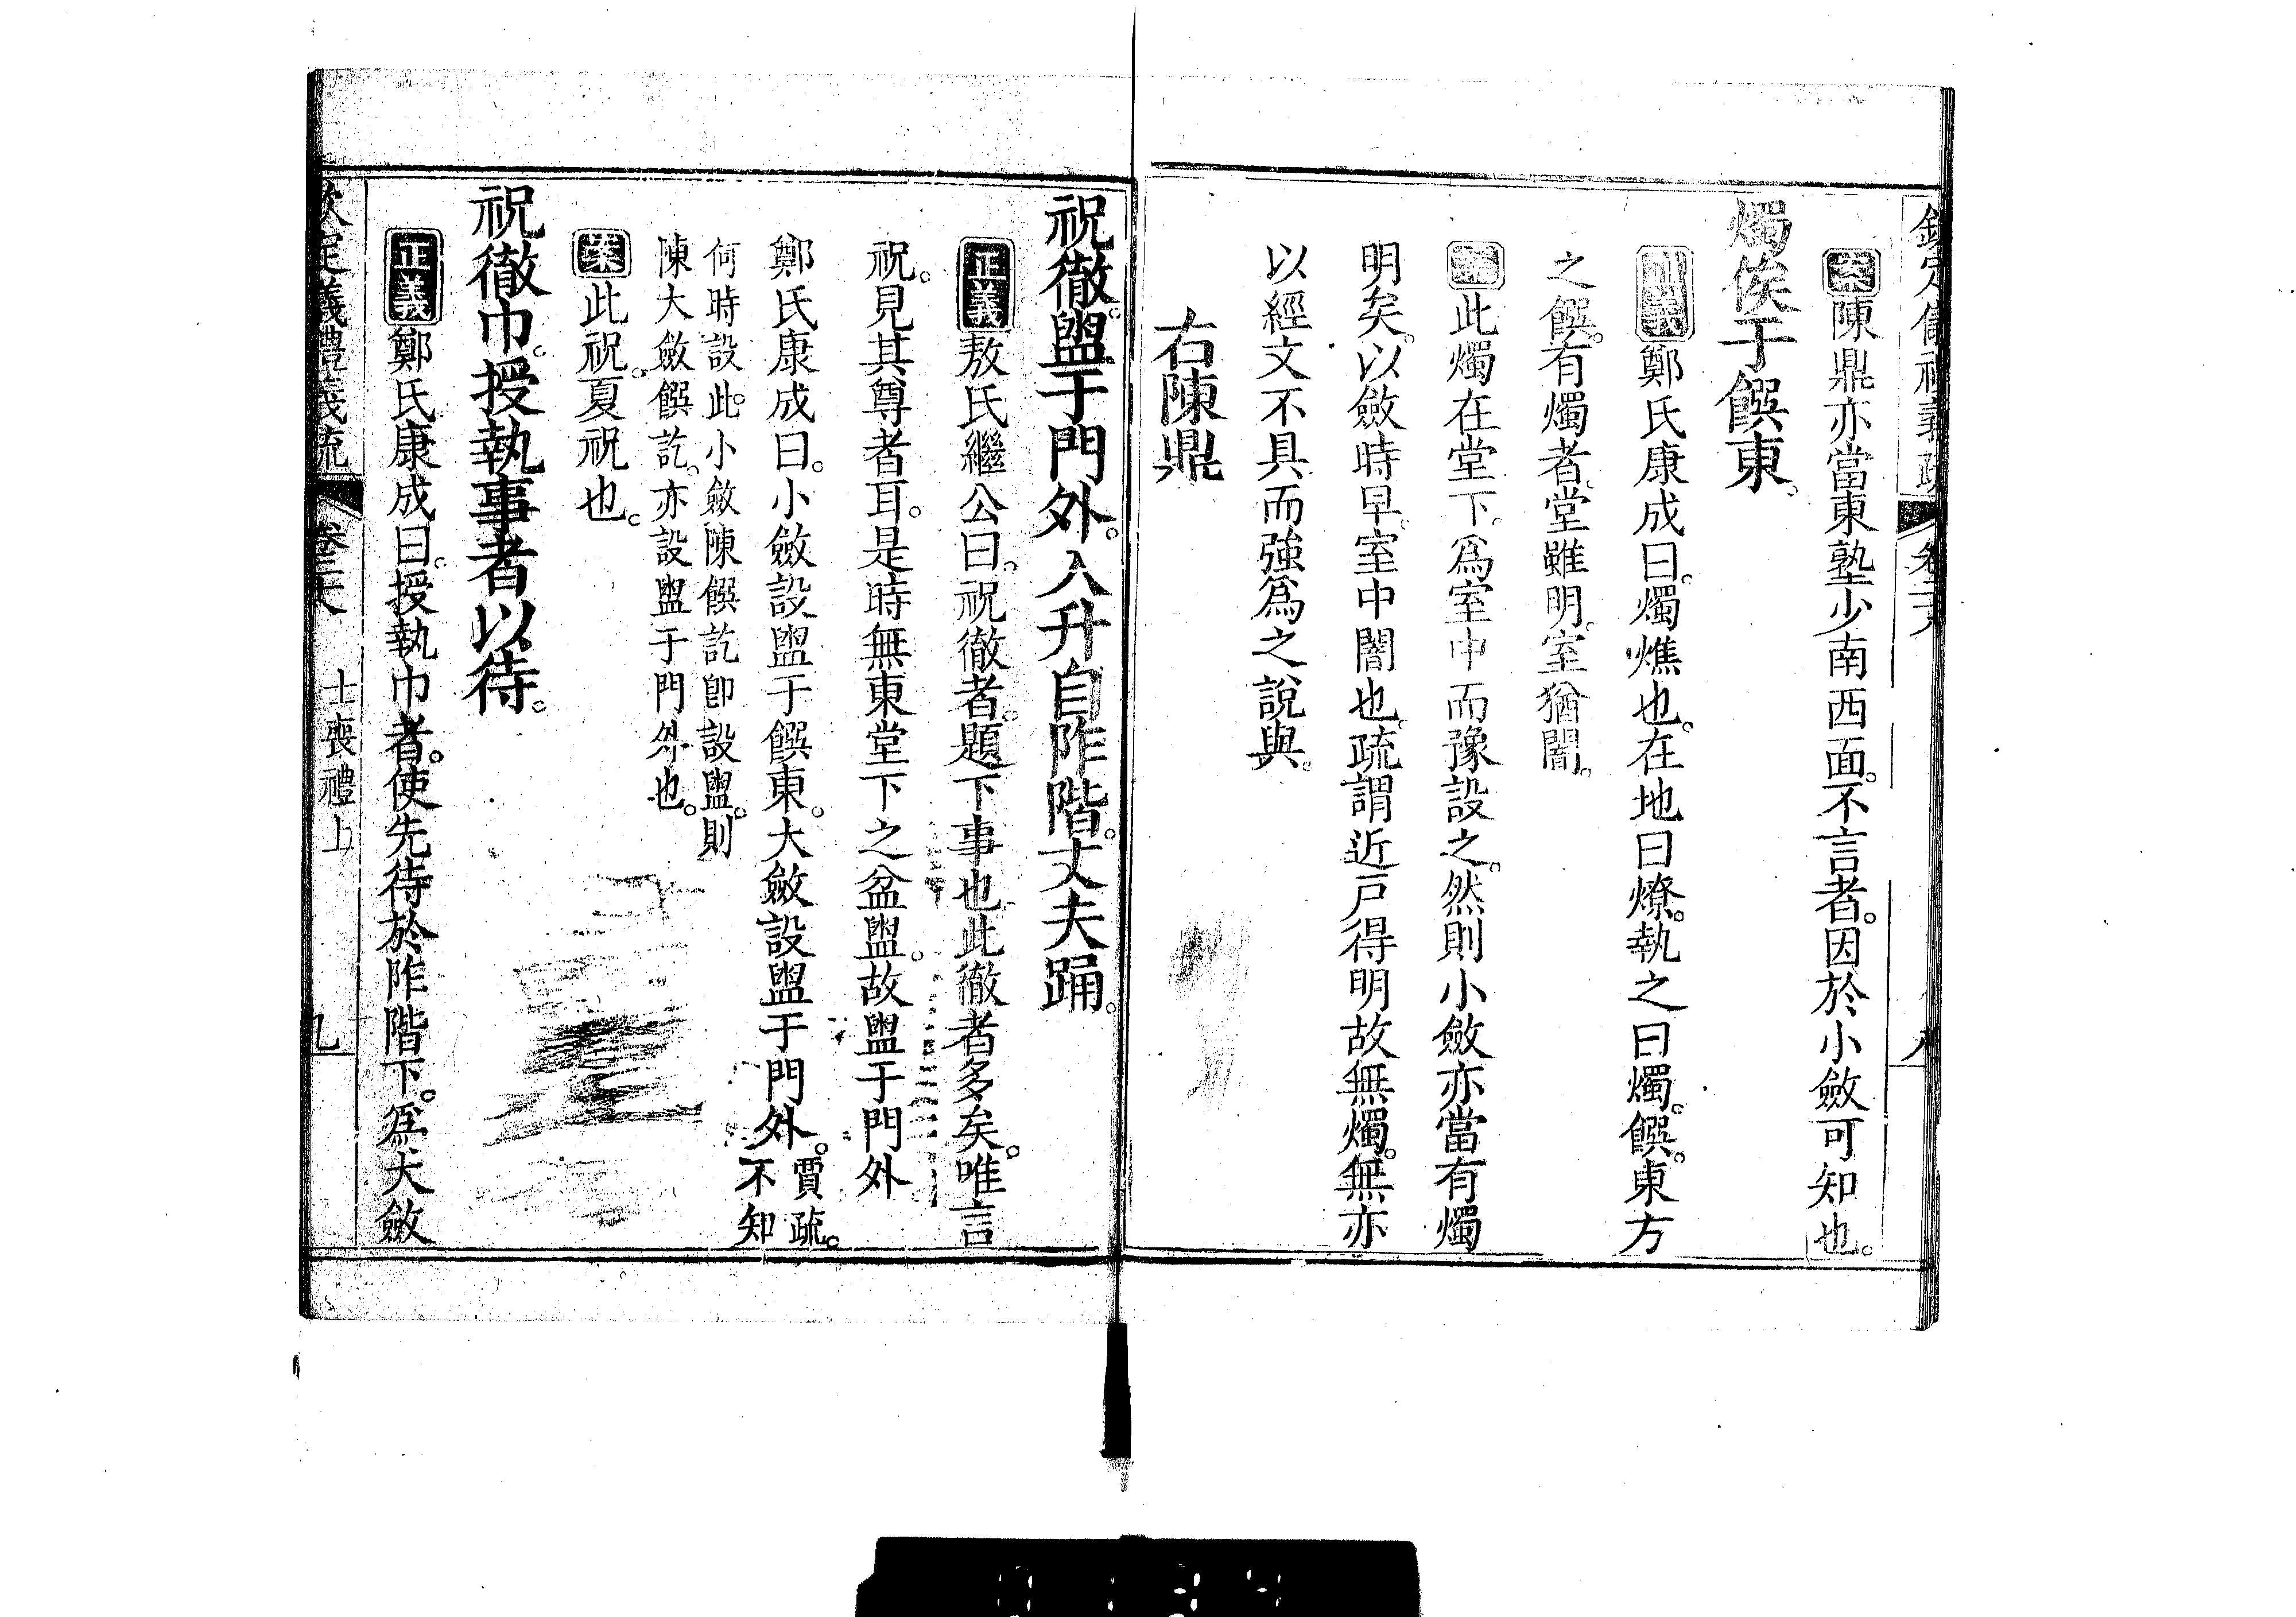 欽定儀禮義疏 卷二十八 八
案陳鼎亦當東塾少南西面。不言者。因於小斂可知也。
燭俟于饌東。
正義鄭氏康成曰。燭燋也。在地曰燎。執之曰燭。饌。東方
之饌。有燭者。堂雖明。室猶闇。
案此燭在堂下。爲室中而豫設之。然則小斂亦當有燭
明矣。以斂時早。室中闇也。疏謂近戸得明故無燭。無亦
以經文不具而強爲之說與。
右陳鼎
祝徹盥于門外。入升自阼階。丈夫踊。
正義敖氏繼公曰。祝徹者。題下事也此徹者多矣。唯言
祝。見其尊者耳。是時無東堂下之盆盥。故盥于門外
鄭氏康成曰。小斂設盥于饌東。大斂設盥于門外。賈疏。不知
何時設此。此小斂陳饌訖卽設盥。則
陳大斂饌訖。亦設盥于門外也。
案此祝。夏祝也。
祝徹巾。授執事者以待。
正義鄭氏康成曰。授執巾者。使先待於阼階下。爲大斂
欽定儀禮義疏 卷二十八 士喪禮上 九